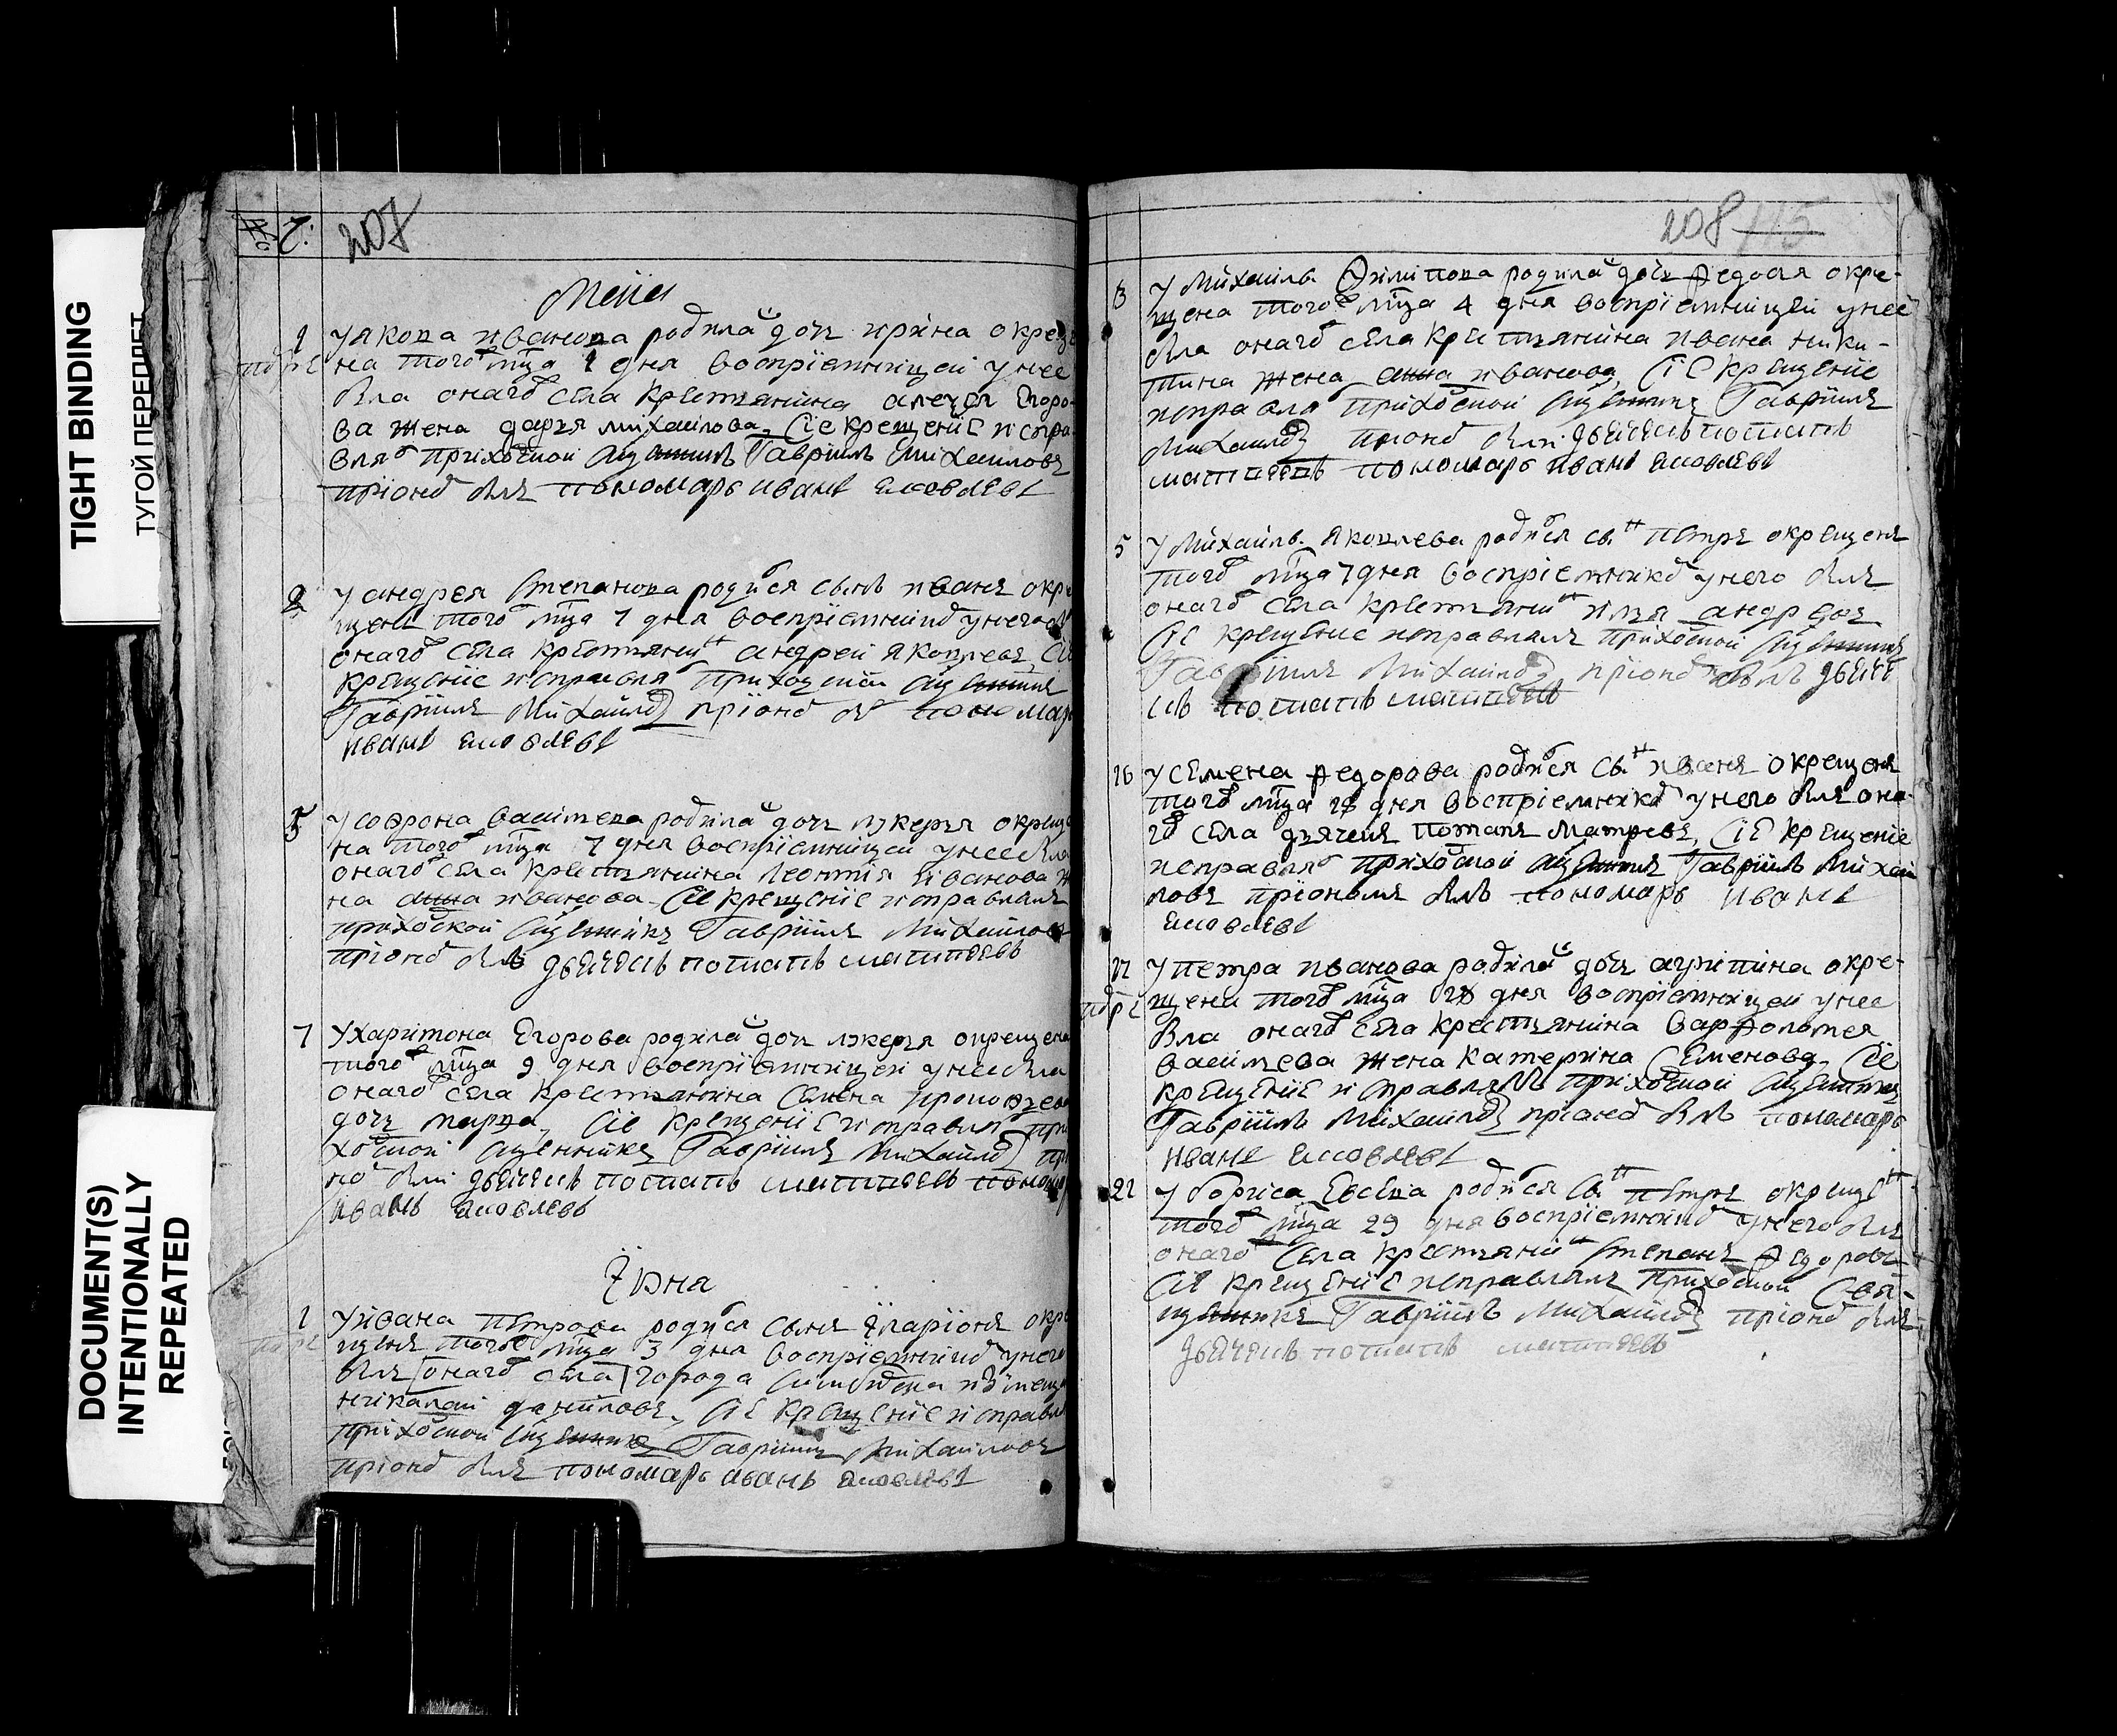 TIGHT BINDING
ТУГОЙ ПЕРЕПЛЕТ
DOCUMENT(S)
INTENTIONALLY
REPEATED
207
Маия
1 У якова иванова родила дочь ирина окреще
на того мца 1 дня воспрiемницей у нее
была онаго села крестьянина алеѯея Егоро
ва жена дарья михаилова, Сiе крещенiе испра
влял приходской Священникъ Гаврiилъ Михаиловъ
при оном былъ пономарь иванъ яковлевъ
2 У андрея Степанова родился сынъ иванъ окре
щенъ того мца 7 дня воспрiемником у него был
онаго села крестьянин андрей яковлевъ, Сiе
крещенiе исправлял приходской Священникъ
Гаврiилъ Михаилов при оном был пономарь
иванъ яковлевъ
5 У софрона васильева родила дочь лукерья окреще
на того мца 7 дня воспрiемницей у нее была
онаго села крестьянина леонтiя иванова же
на анна иванова. Сiе крещенiе исправлялъ
приходской Священникъ Гаврiилъ Михаиловъ
при оном былъ дьячекъ потапъ матвеевъ
7 У харитона Егорова родила дочь лукерья окрещена
того мца 9 дня воспрiемницей у нее была
онаго села крестьянина Семена
дочь марѳа, Сiе крещенiе исправлял при
ходской Священникъ Гаврiилъ Михаилов при о
ном были дьячекъ потапъ матвеевъ пономарь
иванъ яковлевъ
Iюня
1 У ивана Петрова родился сынъ Iларiонъ окре
щенъ того мца 3 дня воспрiемником у него
былъ онаго села города
никалай даниловъ, Сiе крещенiе исправлял
приходской Священникъ Гаврiилъ Михаиловъ
при оном былъ пономарь иванъ яковлевъ
208 115
3 У Михаила Филипова родила дочь Ѳедосья окре-
щена того мца 4 дня воспрiемницей у нее
была онаго села крестьянина ивана ники-
тина жена анна иванова, Сiе крещенiе
исправлял приходской Священникъ Гаврiилъ
Михаилов при оном были дьячекъ потапъ
матвеевъ пономарь иванъ яковлевъ
5 У Михаила Яковлева родился сын Петръ окрещенъ
того мца 7 дня воспрiемником у него былъ
онаго села крестьянин илья андреевъ
Сiе крещенiе исправлялъ приходской Священникъ
Гаврiилъ Михаилов, при оном былъ дьяче
къ потапъ матвеевъ
16 У Семена Ѳедорова родился сын иванъ окрещенъ
того мца 18 дня воспрiемником у него былъ она
го села дьячекъ потапъ матвеевъ, Сiе крещенiе
исправлял приходской Священникъ Гаврiилъ Михаи
ловъ при ономъ былъ пономарь иванъ
яковлевъ
У петра иванова родила дочь агрипина окре-
щена того мца 28 дня воспрiемницей у нее
была онаго села крестьянина варѳоломея
васильева жена катерина Семенова, Сiе
крещенiе исправлялъ приходской Священникъ
Гаврiилъ Михаилов при оном былъ пономарь
иванъ яковлевъ
У бориса Евсеева родился сын Петръ окрещен
того мца 29 дня воспрiемником у него былъ
онаго села крестьянин Степанъ Ѳедоровъ
Сiе крещенiе исправлялъ приходской Свя-
щенникъ Гаврiилъ Михаилов при оном былъ
дьячекъ потапъ матвеевъ